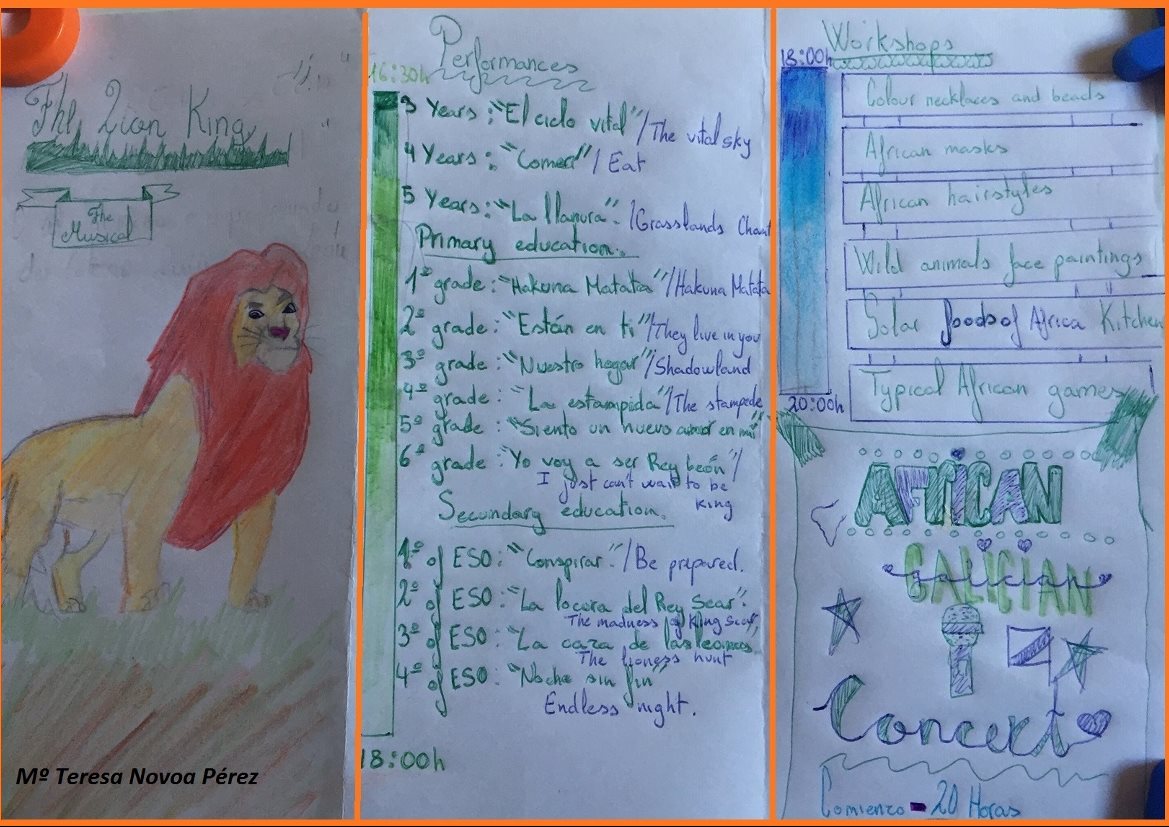 The Lion King
The
Musical
Mº Teresa Novoa Pérez
Performances
16:30h
3 Years: "El ciclo vital"/The vital sky
4 Years: "Comer"/Eat
5 Years: "La llanura"./Grasslands Chant
Primary education.
1º grade: "Hakuna Matata"/Hakuna Matata
2º grade: "Están en ti"/They live in you
3º grade: "Nuestro hogar"/Shadowland
4º grade: "La estampida"/The stampede
5º grade: "Siento un nuevo amor en mi"
6º grade: "Yo voy a ser Rey león"/
I just can't wait to be
King
Secundary education.
1º of ESO: "Conspirar"/Be prepared.
2º of ESO: "La locura del Rey Scar".
The madness of King Scar
3º of ESO: "La caza de las leonas
The lioness hunt
4º of ESO: "Noche sin fin"
Endless night.
18:00h
Workshops
18:00h
Colour necklaces and beads
African masks
African hairstyles
Wild animals face paintings
Solar foods of Africa Kitchen
Typical African games
20:00h
AFRICAN
galician
GALICIAN
Concert
Comienzo - 20 Horas